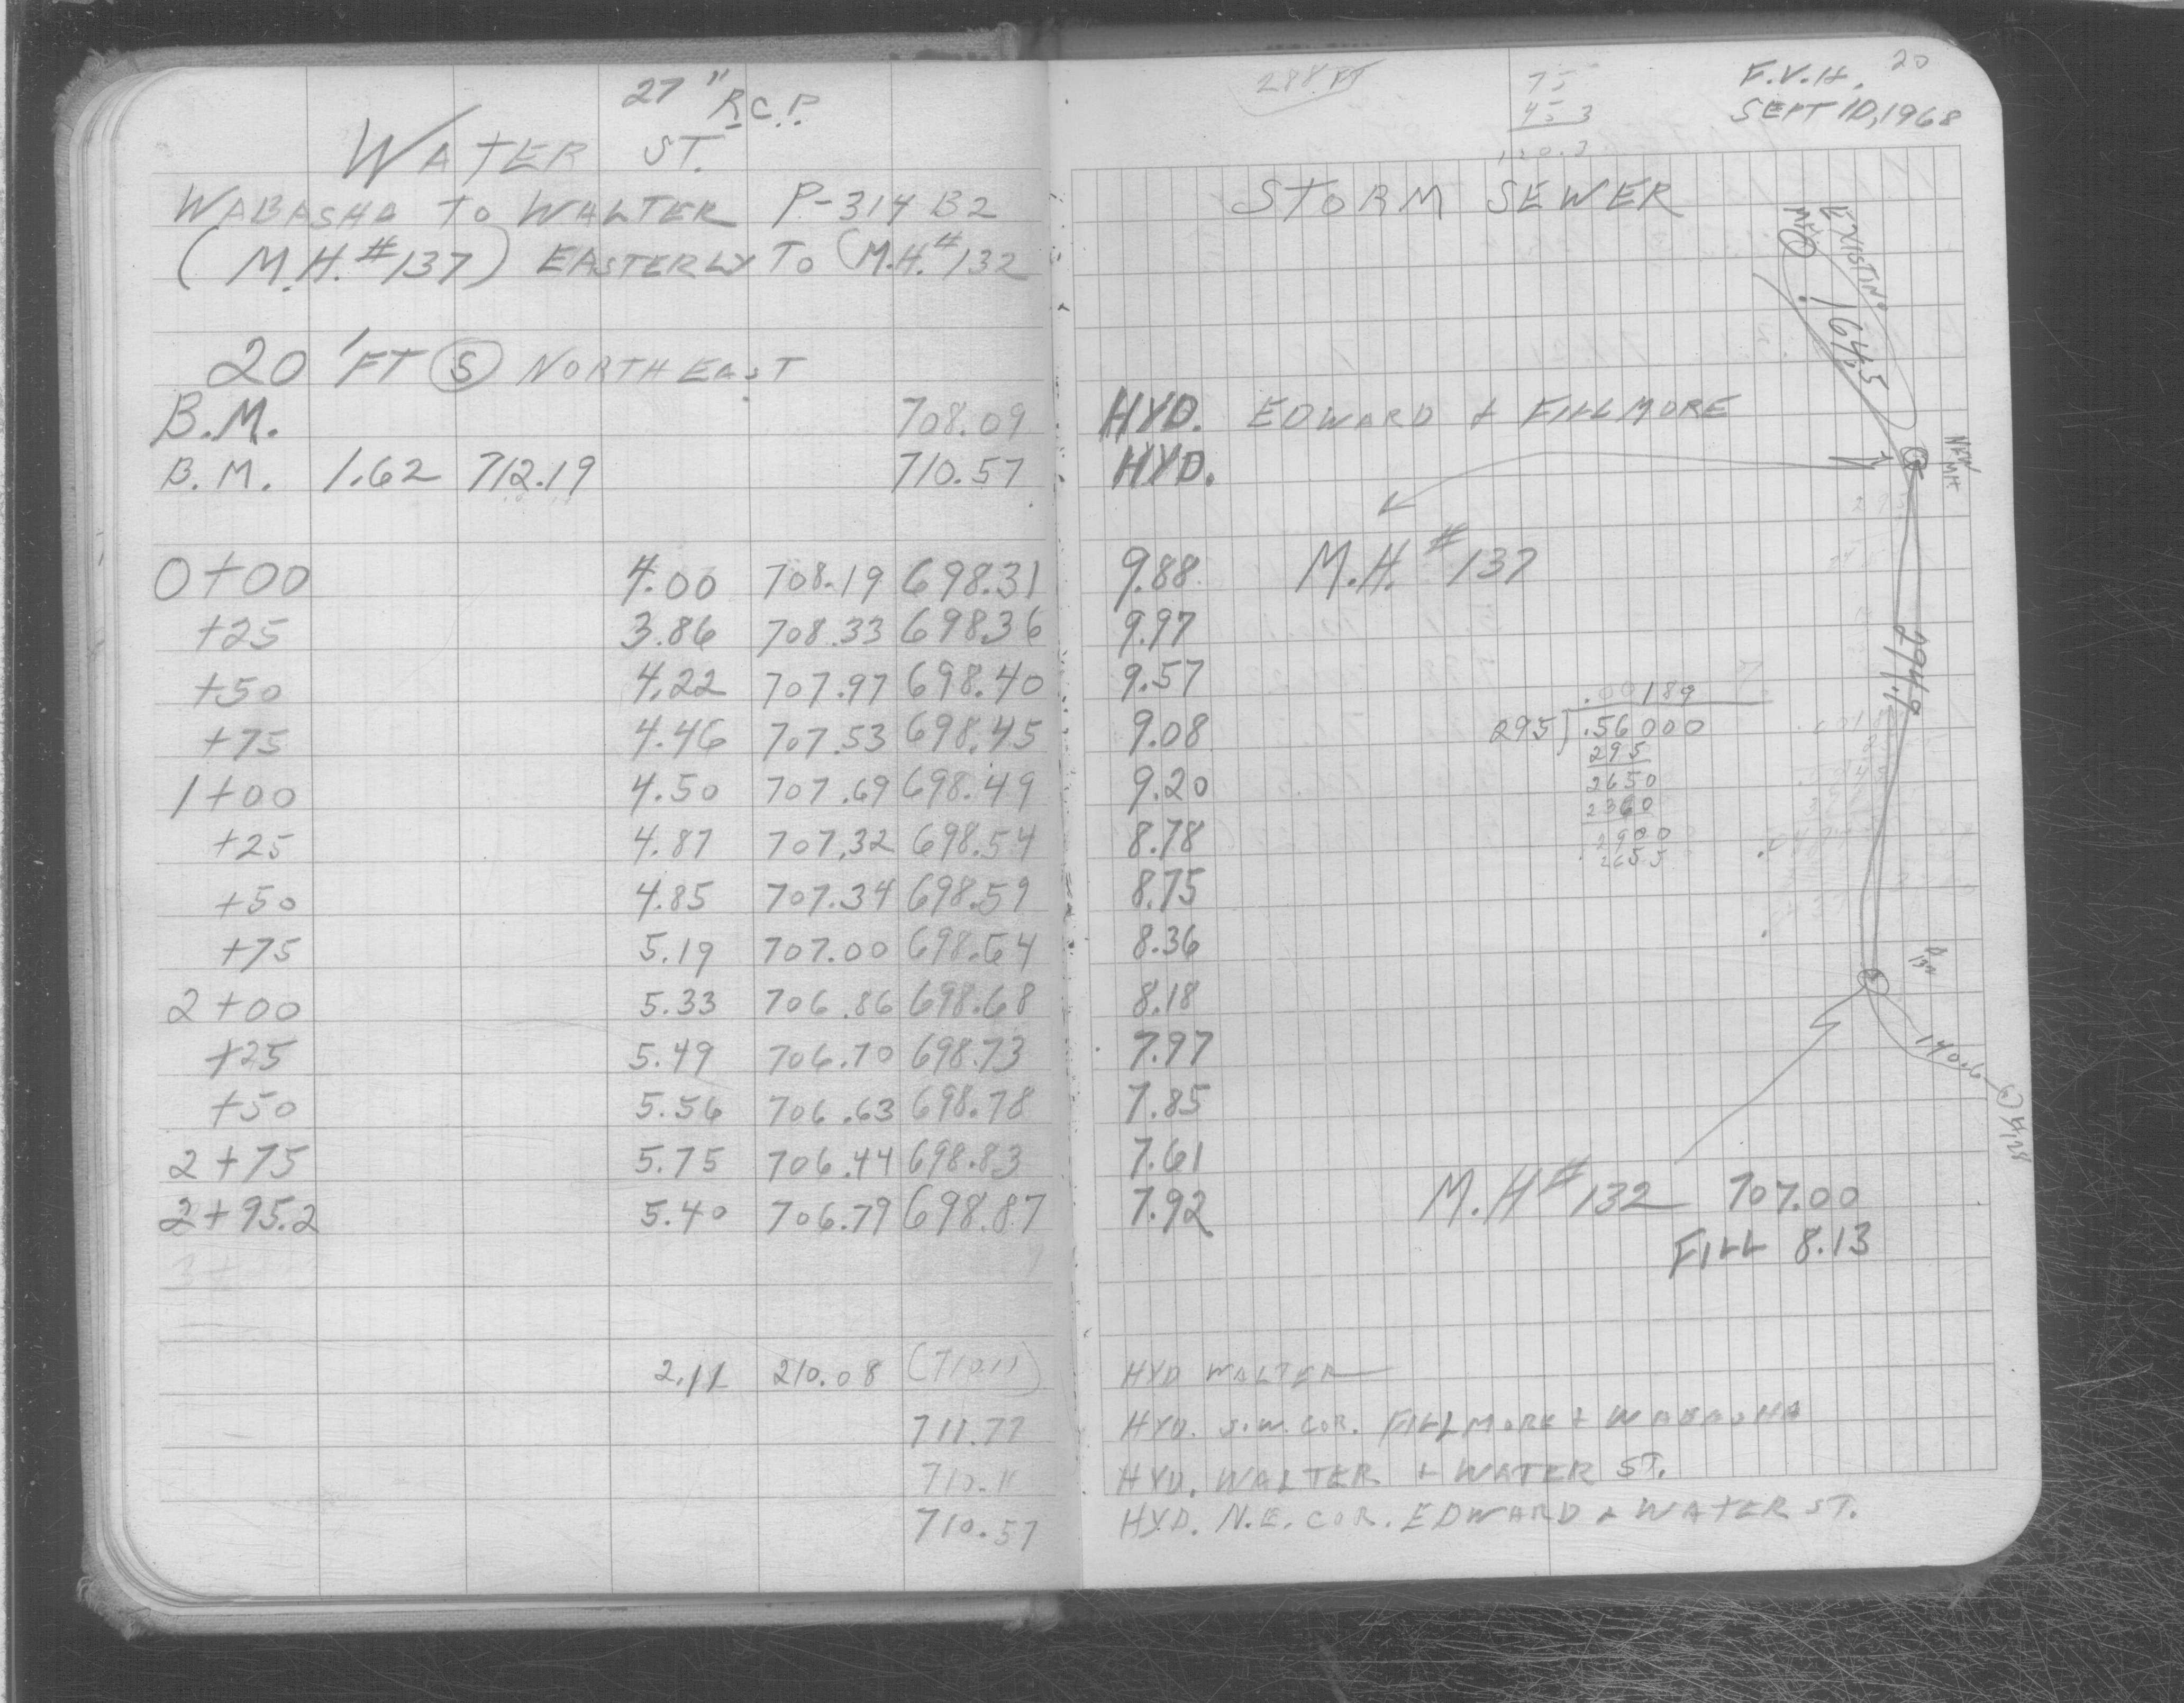 27" R.C.P.
WATER ST.
WABASHA TO WALTER P-314 B2
(M.H. #137) EASTERLY TO (M.H. #132
20' FT (S) NORTHEAST
B.M. 708.09
B.M. 1.62 712.19 710.57
0+00 4.00 708.19 698.31
+25 3.86 708.33 698.36
+50 4.22 707.97 698.40
+75 4.46 707.53 698.45
1+00 4.50 707.69 698.49
+25 4.87 707.32 698.54
+50 4.85 707.34 698.59
+75 5.19 707.00 698.64
2+00 5.33 706.86 698.68
+25 5.49 706.70 698.73
+50 5.56 706.63 698.78
2+75 5.75 706.44 698.83
2+95.2 5.40 706.79 698.87
2.11 210.08 (710.11)
711.77
710.11
710.57
288. FT
75
45 3
120.3
F.V.H. 20
SEPT 10, 1968
STORM SEWER
EXISTIN.
MH
164.5
HYD. EDWARD & FILLMORE
HYD.
NEW
MH
9.88 M.H. #137
9.97
9.57
9.08
9.20
8.78
8.75
8.36
8.18
7.97
7.85
7.61
7.92
.00189
295 ) .56000
295
2650
2360
2900
2655
132
140.6
M.H #132 707.00
FILL 8.13
HYD WALTER
HYD. S.W. COR. FILLMORE & WABASHA
HYD. WALTER & WATER ST.
HYD. N.E. COR. EDWARD & WATER ST.